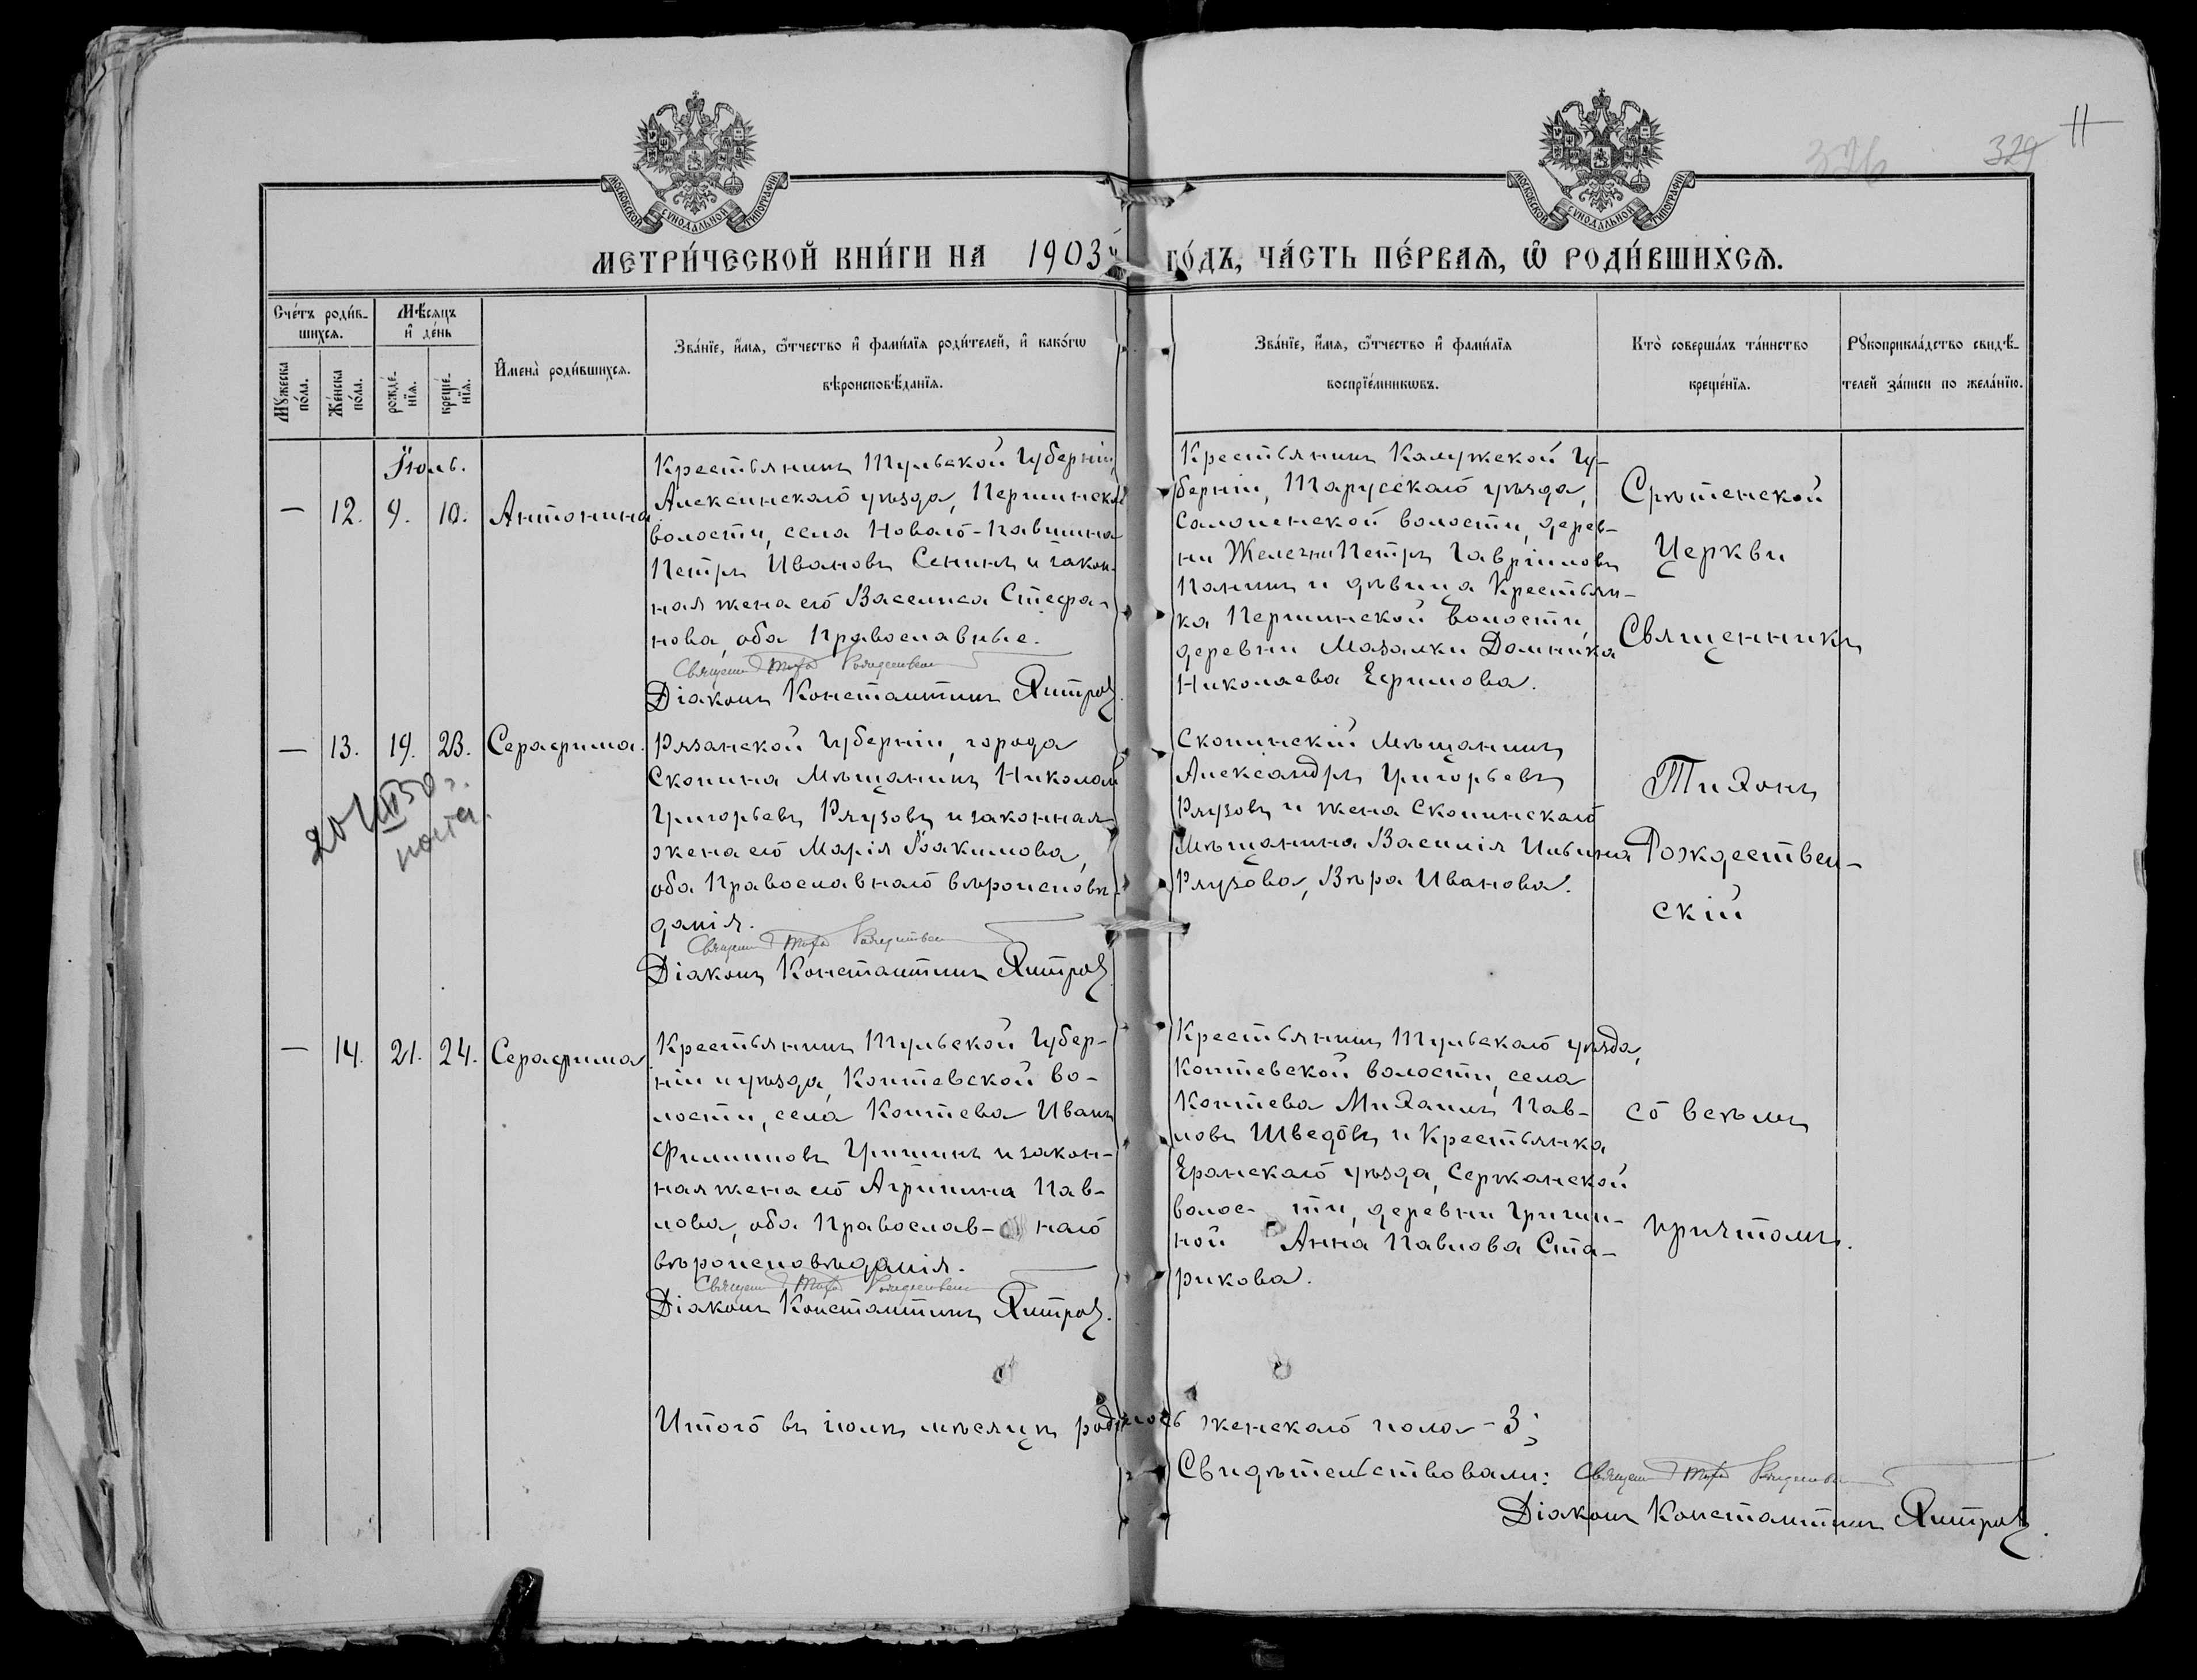 МОСКОВСКОЙ СѴНОДАЛЬНОЙ ТИПОГРАФІИ
МОСКОВСКОЙ СѴНОДАЛЬНОЙ ТИПОГРАФІИ
326 329 11
МЕТРИ́ЧЕСКОЙ КНИ́ГИ НА 1903й ГО́ДЪ, ЧА́СТЬ ПЕ́РВАѦ, Ѡ҆ РОДИ́ВШИХСѦ.
Сче́тъ роди́в-
шихсѧ.
Мꙋ́жеска по́ла.
Же́нска по́ла.
Мѣ́сѧцъ
и҆ де́нь
рожде́-
нїѧ.
креще́-
нїѧ.
И҆мена̀ роди́вшихсѧ.
Зва́нїе, и҆́мѧ, ѻ҆́тчество и҆ фами́лїѧ роди́телей, и҆ како́гѡ
вѣроисповѣ́данїѧ.
Зва́нїе, и҆́мѧ, ѻ҆́тчество и҆ фами́лїѧ
воспрїе́мникѡвъ.
Кто̀ соверша́лъ та́инство
креще́нїѧ.
Рꙋкоприкла́дство свидѣ́-
телей за́писи по жела́нїю.
Іюль.
— 12. 9. 10. Антонина
Крестьянинъ Тульской Губерніи,
Алексинскаго уѣзда, Першинской
волости, села Новаго-Павшина
Петръ Ивановъ Сенинъ и закон-
ная жена его Васелиса Стефа-
нова, оба Православные.
Священ Тихо Рождествен
Діаконъ Константинъ Хитров.
Крестьянинъ Калужской Гу-
берніи, Тарусскаго уѣзда,
Салопенской волости, дерев-
ни Железни Петръ Гавріиловъ
Панинъ и дѣвица Крестьян-
ка Першинской волости
деревни Мазалки Домника
Николаева Ефимова.
Срѣтенской
Церкви
Священникъ
— 13. 19. 23. Серафима.
20 VIII 50 г.
Рязанской Губерніи, города
Скопина Мѣщанинъ Николай
Григорьевъ Рлузовъ и законная
жена его Марія Іоакимова,
оба Православнаго вѣроисповѣ-
данія.
Священ Тихо Рождествен
Діаконъ Константинъ Хитров.
Скопинскій Мѣщанинъ
Александръ Григорьевъ
Рлузовъ и жена Скопинскаго
Мѣщанина Василія Ильина
Рлузова, Вѣра Иванова.
Тихонъ
Рождествен-
скій
— 14. 21. 24. Серафима
Крестьянинъ Тульской Губер-
ніи и уѣзда, Коптевской во-
лости, села Коптева Иванъ
Филипповъ Гришинъ и закон-
ная жена его Агрипина Пав-
лова, оба Православ- наго
вѣроисповѣданія.
Священ Тихо Рождествен
Діаконъ Константинъ Хитров.
Крестьянинъ Тульскаго уѣзда,
Коптевской волости, села
Коптева Михаилъ Пав-
ловъ Шведовъ и Крестьянка
уѣзда, Сержанской
волос- ти, деревни
ной Анна Павлова Ста-
рикова.
со всѣмъ
причтомъ.
Итого въ іюлѣ мѣсяцѣ родилось женскаго пола - 3;
Свидѣтельствовали: Священ Тихо Рождествен
Діаконъ Константинъ Хитров.